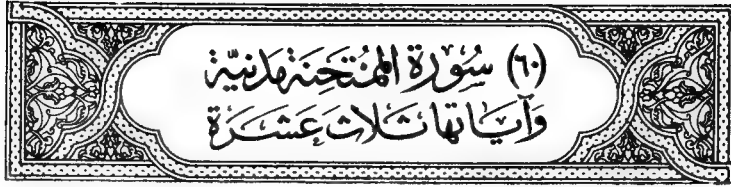 (٦٠) سُورَة المُمْتَحِنَة مَدَنِيَّة
وَآيَاتُهَا ثَلَاث عَشَرَة